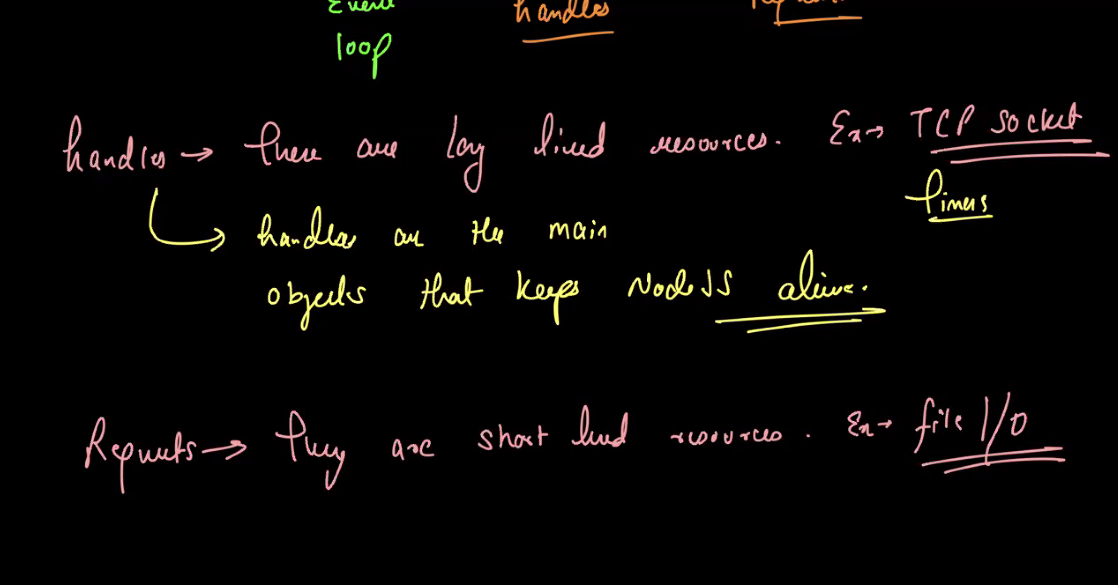 Event handles
loop
handles → there are long lived resources. Ex → TCP socket
timers
handles are the main
objects that keeps NodeJS alive.
Requests → they are short lived resources. Ex → file I/O